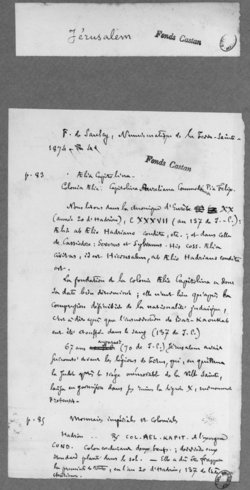 Jérusalem
Fonds Castan
F. de Saulcy, Numismatique de la Terre-Sainte
1874
Fonds Castan
p. 83 Ælia Capitolina.
Colonia Ælia Capitolina Commoda Pia Felix.
Nous lisons dans la chronique d'Eusèbe XX
(année 20 d'Hadrien), CXXXVII (an 137 de J.-C.):
Ælia ab Ælio Hadriano condita, etc.; et dans celle
de Cassiodore: Severus et Sylvanus. His Coss. Ælia
civitas, id est Hierusalem, ab Ælio Hadriano condita
est.
La fondation de la colonie Ælia Capitolina a donc
sa date bien déterminée; elle n'eut lieu qu'après la
compression définitive de la nationalité judaïque,
c'est à dire que l'insurrection de Bar-Kaoukab
eut été étouffée dans le sang (137 de J.C.)
67 ans auparavant (70 de J.C.) Jérusalem avait
succombé devant les légions de Titus, qui, en quittant
la Judée après le siège mémorable de la Ville Sainte,
laissa en garnison dans ses ruines la légion X, surnommée
Fretensis.
p. 85 Monnaies impériales et Coloniales
Hadrien. COL. AEL. KAPIT. A l'exergue
COND. Colon conduisant deux bœufs; derrière un
étendard planté dans le sol. elle a dû être frappée
la première de toutes, en l'an 20 d'Hadrien, 137 de l'ère
chrétienne.